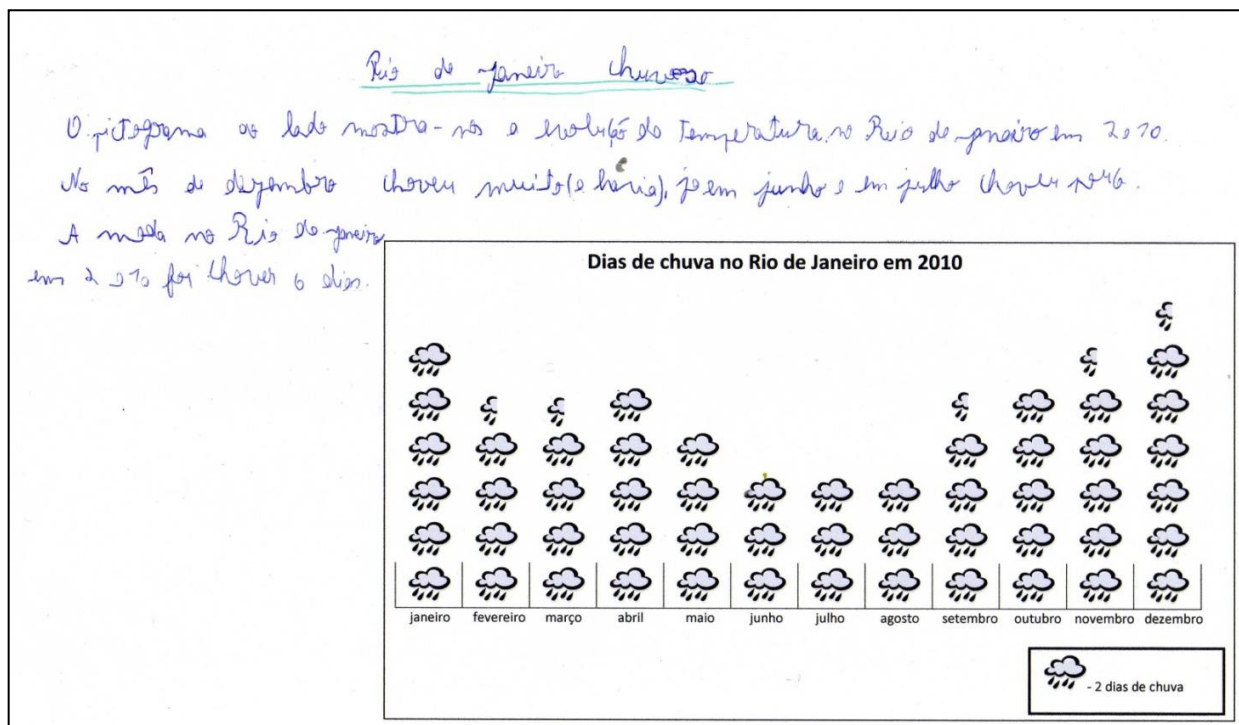 Rio de janeiro chuvoso
O pictograma ao lado mostra-nos a evolução da temperatura no Rio de janeiro em 2010.
No mês de dezembro choveu muito (e havia), já em junho e em julho choveu pouco.
A moda no Rio de janeiro
em 2010 foi chover 6 dias.
Dias de chuva no Rio de Janeiro em 2010
janeiro fevereiro março abril maio junho julho agosto setembro outubro novembro dezembro
- 2 dias de chuva